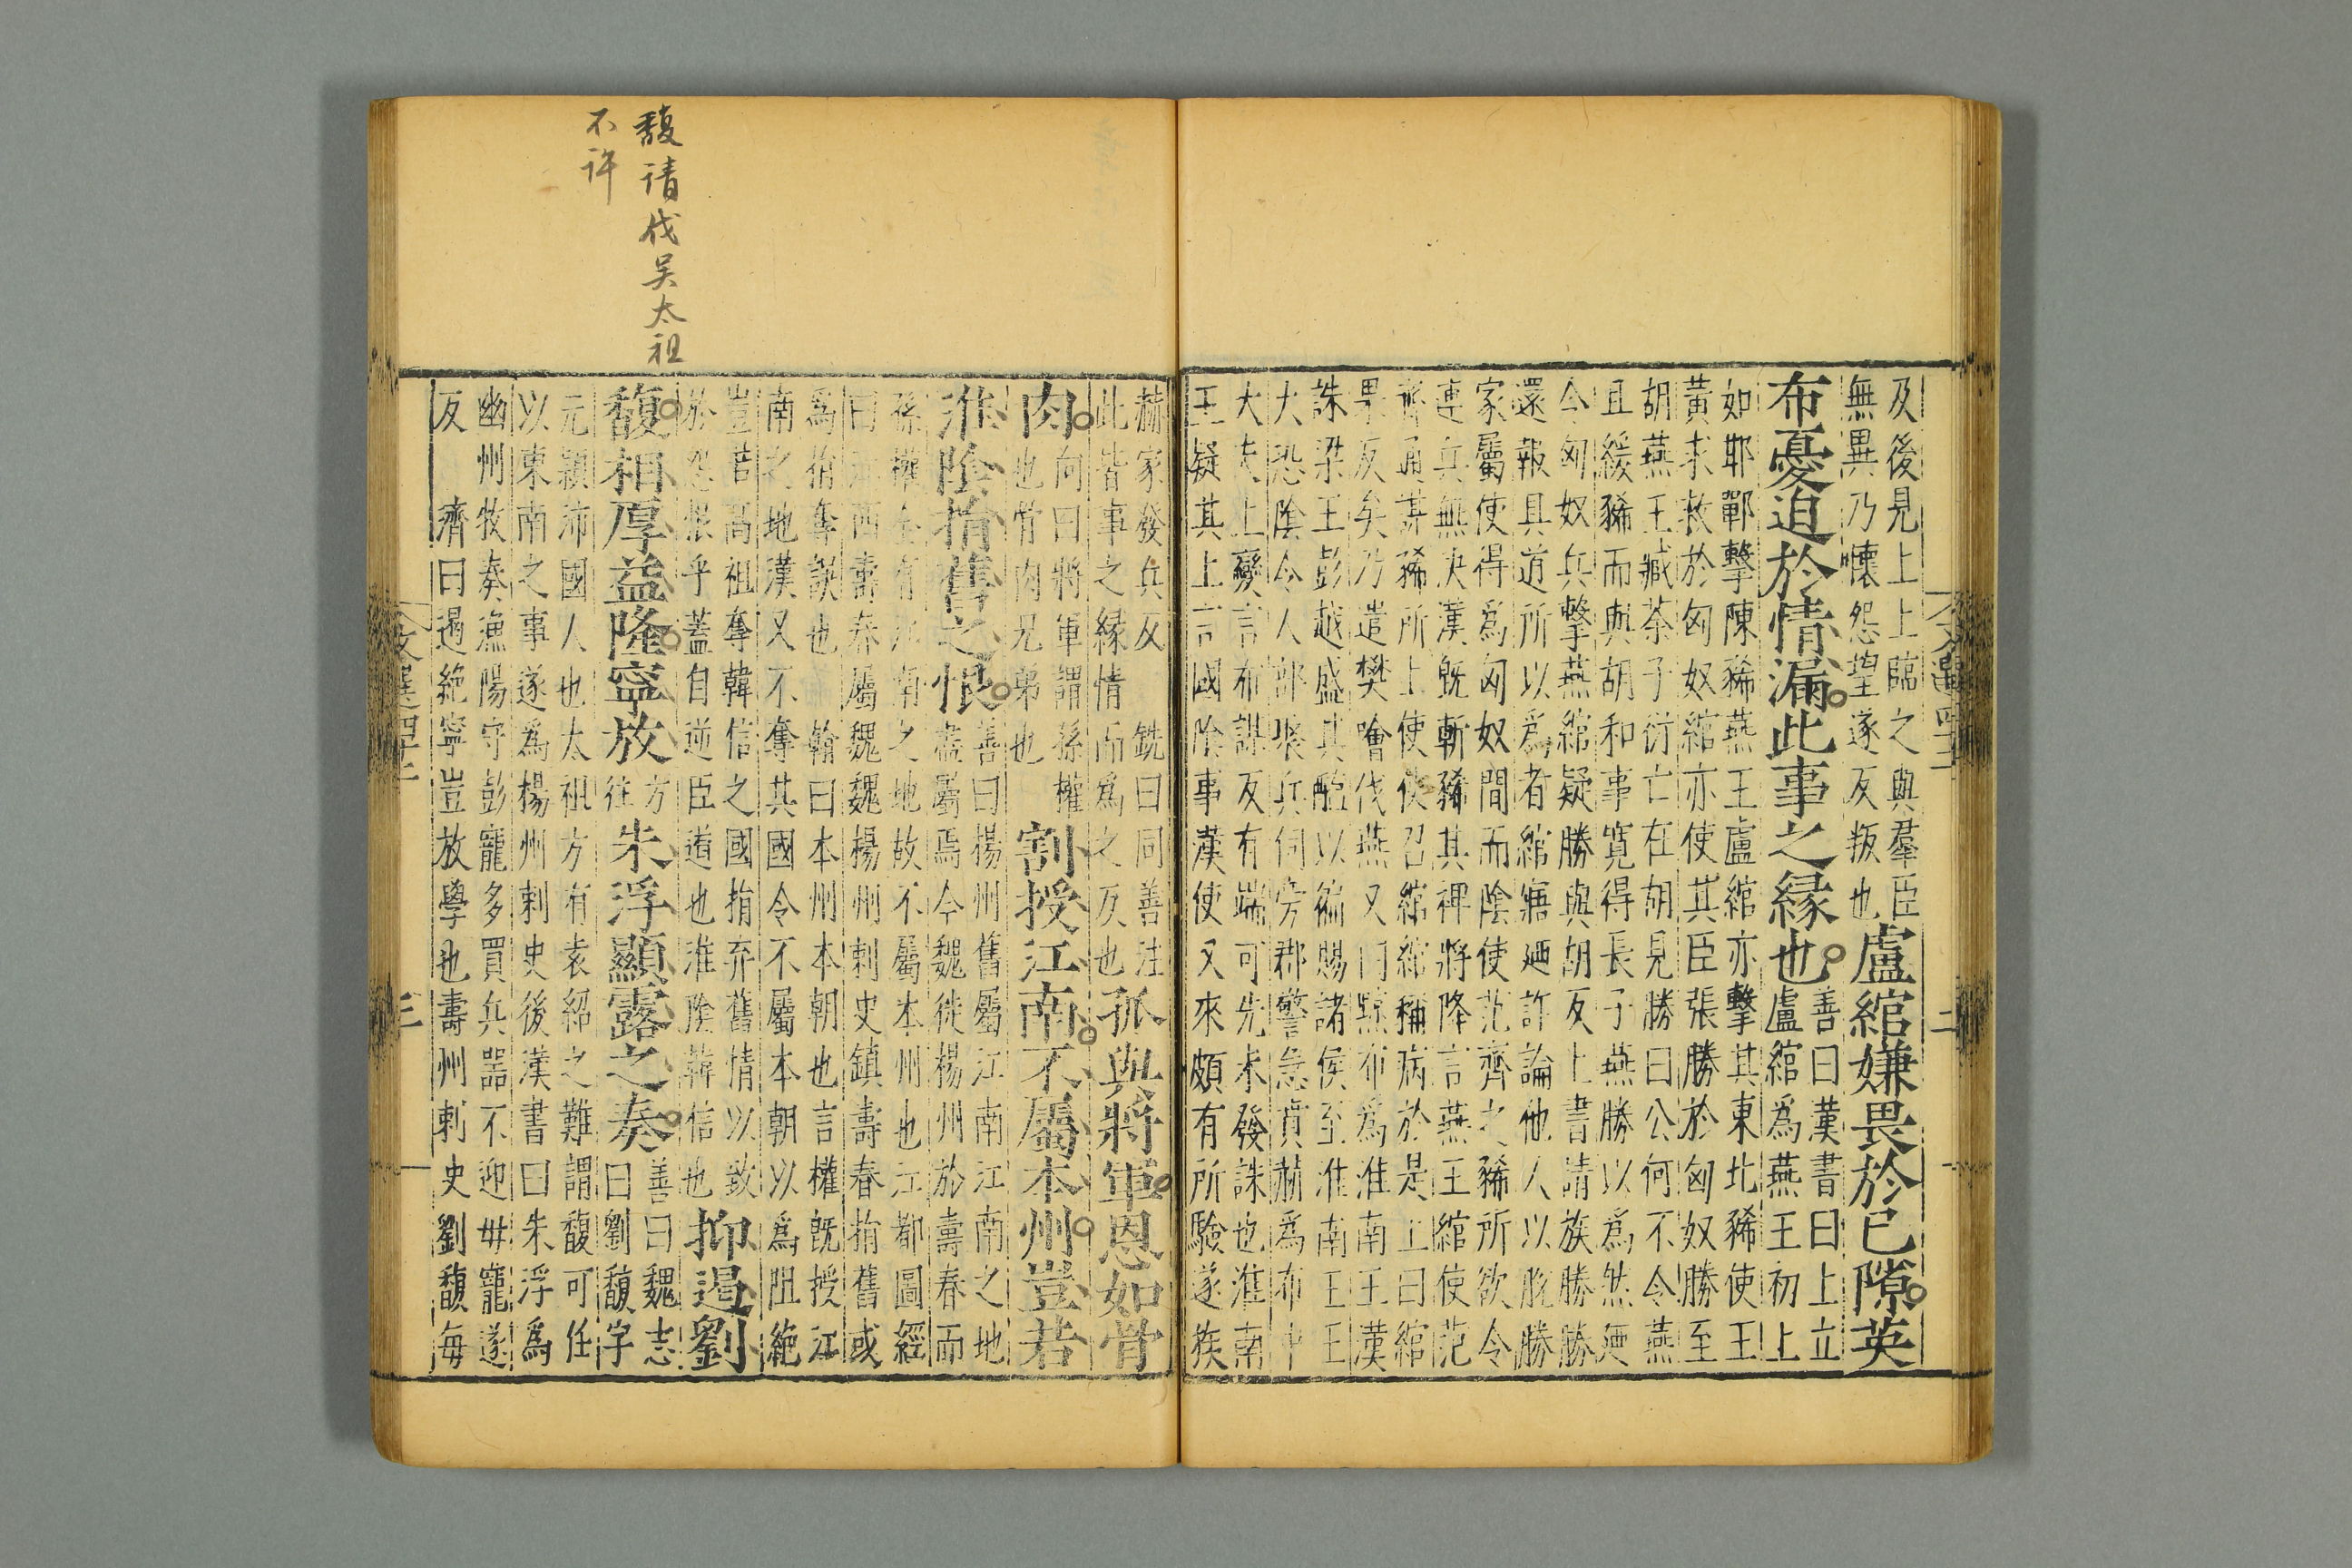 及後見上上臨之與羣臣
無異乃懷怨望遂反叛也
盧綰嫌畏於已隙英
布憂迫於情漏此事之緣也
善曰漢書曰上立
盧綰爲燕王初上
如邯鄲擊陳豨燕王盧綰亦擊其東北豨使王
黃求救於匈奴綰亦使其臣張勝於匈奴勝至
胡燕王臧荼子衍亡在胡見勝曰公何不令燕
且緩豨而與胡和事寬得長子燕勝以爲然廼
令匈奴兵擊燕綰疑勝與胡反上書請族勝勝
還報具道所以爲者綰寤廼許論他人以脫勝
家屬使得爲匈奴間而陰使范齊之豨所欲令
連兵無決漢旣斬豨其裨將降言燕王綰使范
齊通謀豨所上使使召綰綰稱病於是上曰綰
果反矣乃遣樊噲伐燕又曰黥布爲淮南王漢
誅梁王彭越盛其醢以徧賜諸侯至淮南王王
大恐陰令人部聚兵伺旁郡警急賁赫爲布中
大夫上變言布謀反有端可先未發誅也淮南
王疑其上言國陰事漢使又來頗有所驗遂族
赫家發兵反　銑曰同善注
此皆事之緣情而爲之反也
孤與將軍恩如骨
肉
向曰將軍謂孫權
也骨肉兄弟也
割授江南不屬本州豈若
淮陰捐舊之恨
善曰楊州舊屬江南江南之地
盡屬焉今魏徙楊州於壽春而
孫權全有江南之地故不屬本州也江都圖經
曰江西壽春屬魏魏楊州刺史鎮壽春捐舊或
爲捐奪誤也　翰曰本州本朝也言權旣授江
南之地漢又不奪其國令不屬本朝以爲阻絕
豈若高祖奪韓信之國捐弃舊情以致
於怨恨乎蓋自逆臣道也淮陰韓信也
抑遏劉
馥相厚益隆寧放
方
往
朱浮顯露之奏
善曰魏志
曰劉馥字
元穎沛國人也太祖方有袁紹之難謂馥可任
以東南之事遂爲楊州刺史後漢書曰朱浮爲
幽州牧奏漁陽守彭寵多買兵器不迎毋寵遂
反　濟曰遏絕寧豈放學也壽州刺史劉馥每
三
二
馥请伐吴太祖
不许